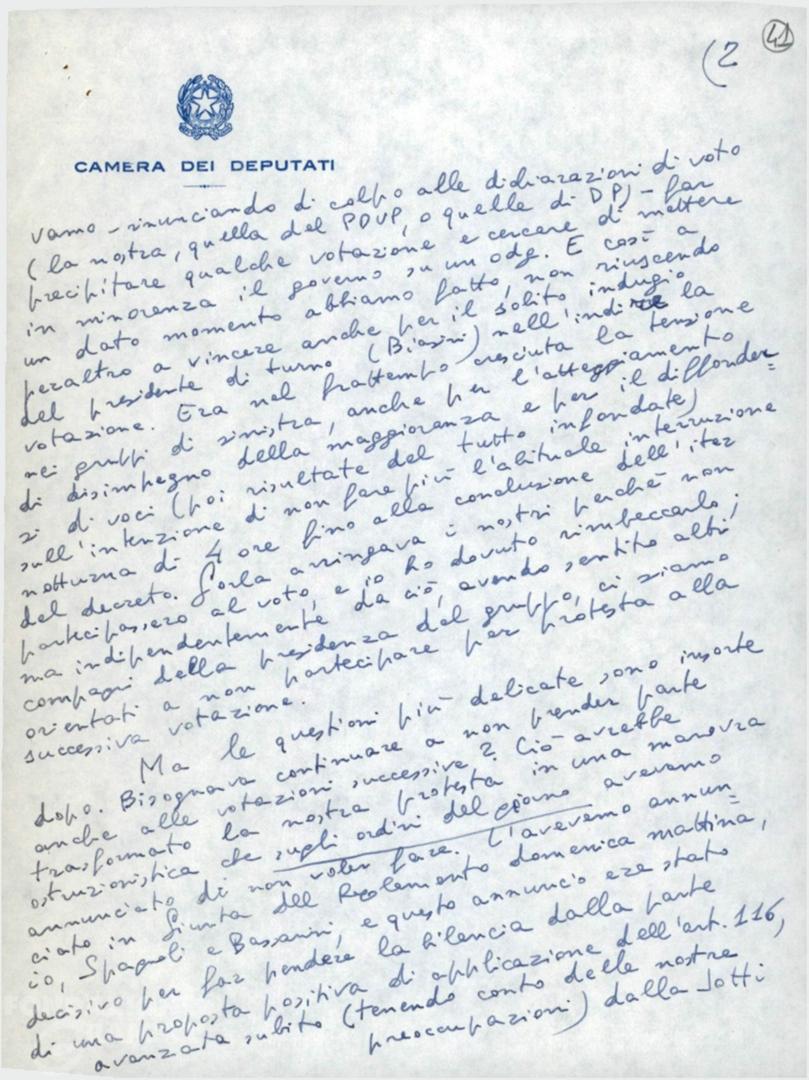 41
(2
CAMERA DEI DEPUTATI
vamo - rinunciando di colpo alle dichiarazioni di voto
(la nostra, quella del PDUP, o quelle di DP) - far
precipitare qualche votazione e cercare di mettere
in minoranza il governo su un odg. E così a
un dato momento abbiamo fatto, non riuscendo
peraltro a vincere anche per il solito indugio
del presidente di turno (Biasini) nell'indire la
votazione. Era nel frattempo cresciuta la tensione
nei gruppi di sinistra, anche per l'atteggiamento
di disimpegno della maggioranza e per il diffonder=
si di voci (poi risultate del tutto infondate)
sull'intenzione di non fare più l'abituale interruzione
notturna di 4 ore fino alla conclusione dell'iter
del decreto. Gorla arringava i nostri perché non
partecipassero al voto, e io ho dovuto rimbeccarlo;
ma indipendentemente da ciò, avendo sentito altri
compagni della presidenza del gruppo, ci siamo
orientati a non partecipare per protesta alla
successiva votazione.
Ma le questioni più delicate sono insorte
dopo. Bisognava continuare a non prender parte
anche alle votazioni successive? Ciò avrebbe
trasformato la nostra protesta in una manovra
ostruzionistica che sugli ordini del giorno avevamo
annunciato di non voler fare. L'avevamo annun=
ciato in Giunta del Regolamento domenica mattina,
io, Spagnoli e Bassanini, e questo annuncio era stato
decisivo per far pendere la bilancia dalla parte
di una proposta positiva di applicazione dell'art. 116,
avanzata subito (tenendo conto delle nostre
preoccupazioni) dalla Jotti